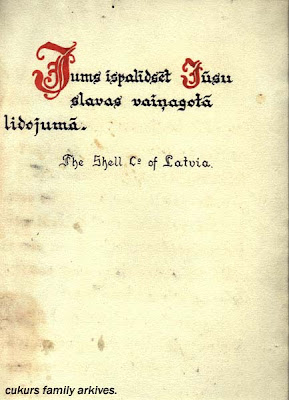 Jums ispalidset Jūsu
slavas vaiņagotā
lidojumā.
The Shell Co of Latvia.
cukurs family arkives.